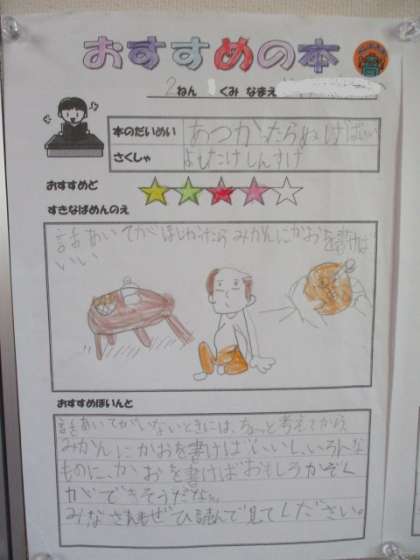 おすすめの本
2ねん 1くみ なまえ
本のだいめい あつかったらぬげばいい
さくしゃ よしたけしんすけ
おすすめど
すきなばめんのえ
話あいてがほしかったらみかんにかおを書けば
いい
おすすめぽいんと
話あいてがいないときには、ちょっと考えてから
みかんにかおを書けばいいし、いろんな
ものに、かおを書けばおもしろかぞく
ができそうだなぁ。
みなさんもぜひ読んで見てください。